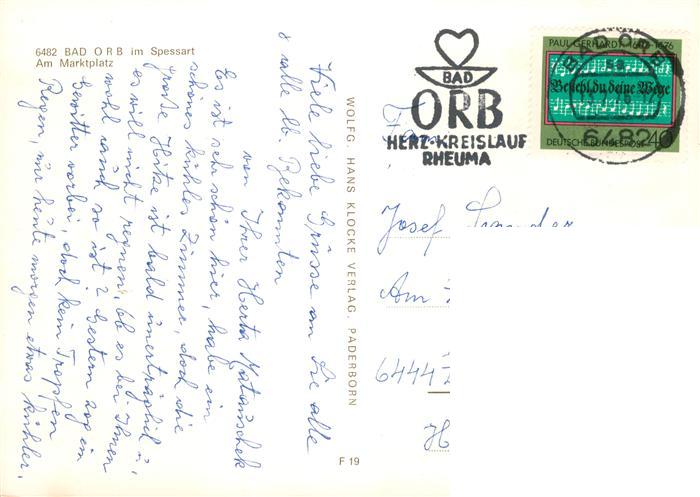 6482 BAD ORB im Spessart
Am Marktplatz
Viele liebe Grüsse an Sie alle
& alle lb. Bekannten
von Ihrer Herta
Es ist sehr schön hier, habe ein
schönes kühles Zimmer, doch die
große Hitze ist bald unerträglich u.
es will nicht regnen, ob es bei Ihnen
wohl auch so ist? Gestern zog ein
Gewitter vorbei, doch kein Tropfen
Regen, nur heute morgen etwas kühler.
WOLFG. HANS KLOCKE VERLAG, PADERBORN
F 19
BAD
ORB
HERZ-KREISLAUF
RHEUMA
PAUL GERHARDT 1607-1676
Befiehl du deine Wege
DEUTSCHE BUNDESPOST 40
BAD ORB
6482
Josef
Am
6444
H